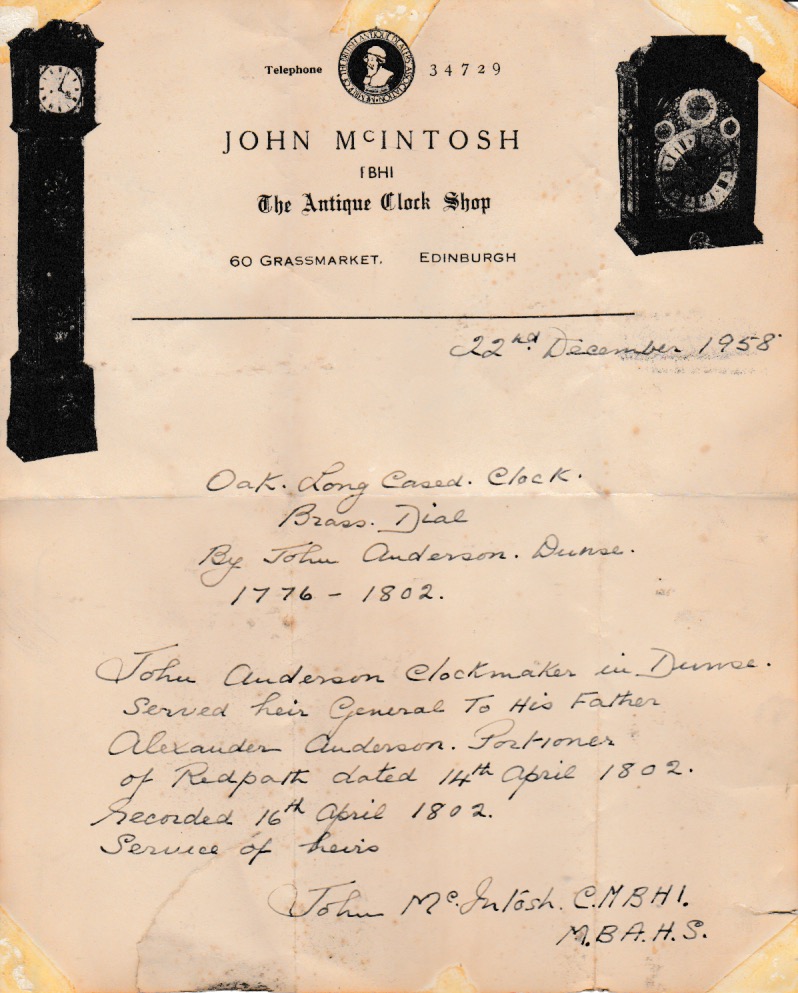 Telephone 34729
MEMBER OF THE BRITISH ANTIQUE DEALERS ASSOCIATION
JOHN McINTOSH
FBHI
The Antique Clock Shop
60 GRASSMARKET, EDINBURGH
22nd December 1958
Oak. Long Cased. Clock.
Brass. Dial
By John Anderson. Dunse.
1776 - 1802.
John Anderson Clockmaker in Dunse.
Served heir General To His Father
Alexander Anderson. Portioner
of Redpath dated 14th April 1802.
recorded 16th April 1802.
Service of heirs
John Mc.Intosh. C.M.B.H.I.
M.B.A.H.S.